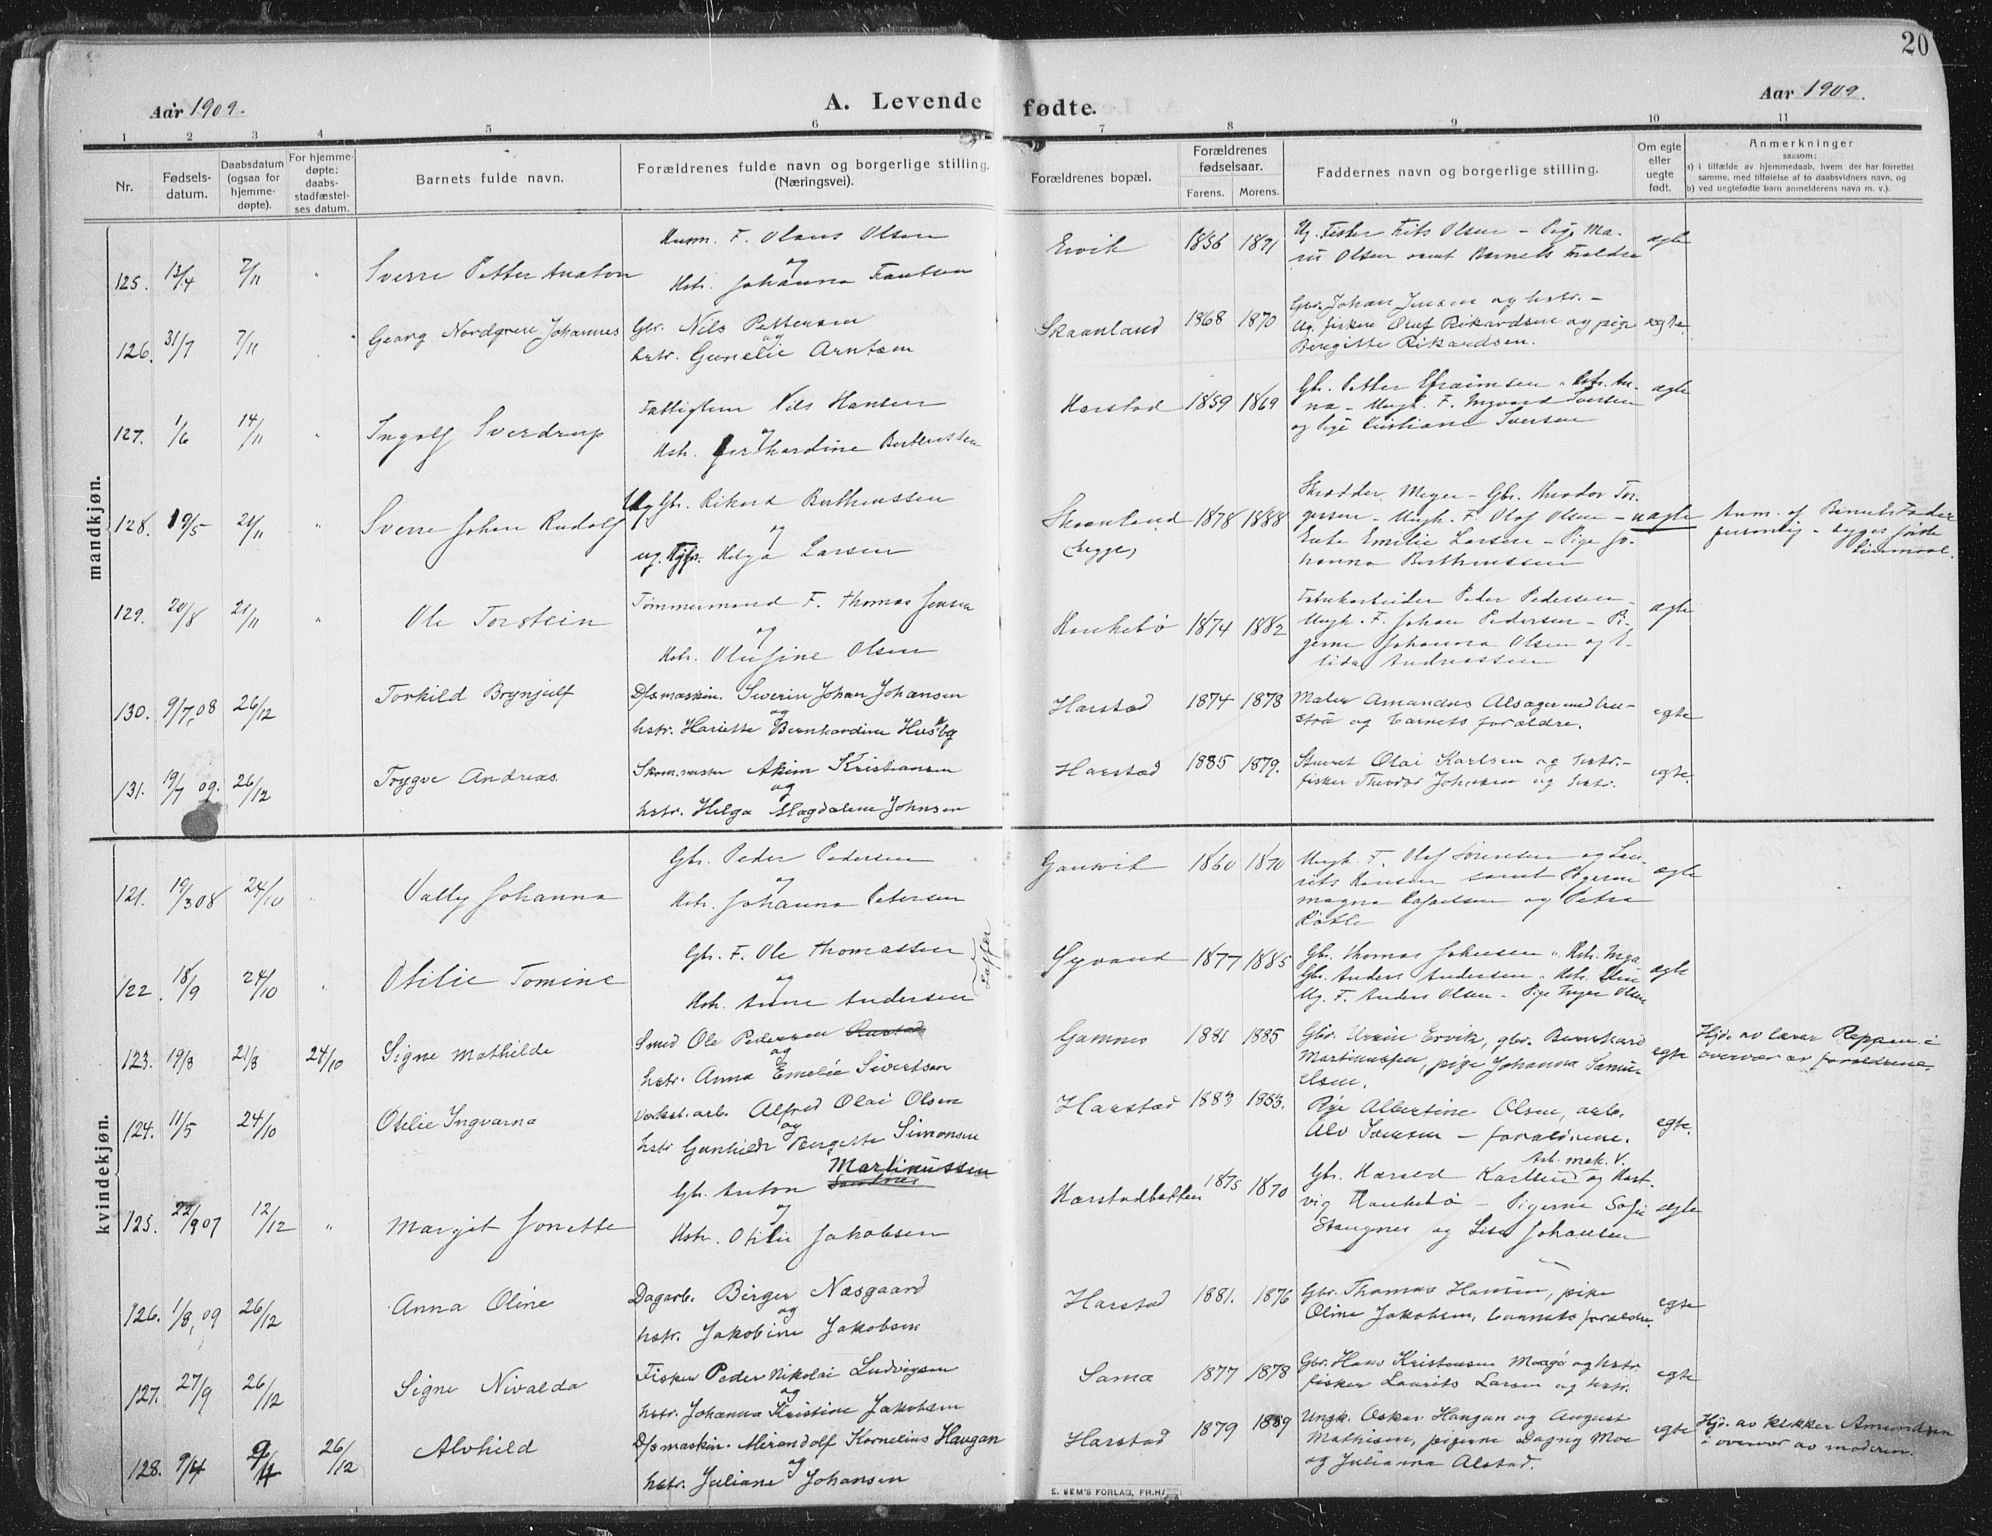 20
Aar 1909.
A. Levende fødte.
Aar 1909.
1 2 3 4 5 6 7 8 9 10 11
Nr.
Fødselsdatum.
Daabsdatum (ogsaa for hjemmedøpte).
For hjemmedøpte: daabsstadfæstelses datum.
Barnets fulde navn.
Forældrenes fulde navn og borgerlige stilling. (Næringsvei).
Forældrenes bopæl.
Forældrenes fødselsaar.
Farens. Morens.
Faddernes navn og borgerlige stilling.
Om egte eller uegte født.
Anmerkninger
saasom:
a) i tilfælde av hjemmedaab, hvem der har forrettet samme, med tilføielse af to daabsvidners navn, og
b) ved uegtefødte barn anmelderens navn m. v.).
mandkjøn.
125. 13/4 7/11 " Sverre Petter
F. Olaus Olsen
og
Hstr. Johanna
Ervik 1856 1871
Olsen samt Barnets
ægte
126. 31/7 7/11 Georg Nordgren Johannes
Gbr. Nils Pettersen
og
hstr. Gunelie Arntsen
Skaanland 1868 1870
Gbr. Johan Jensen og hstr. –
Ug. fisker Oluf Rikardsen og pige
Beregitte Rikardsen.
egte.
127. 1/6 14/11 " Ingolf Sverdrup
Nils Hansen
og
Hstr. Berthensen
Harstad 1859 1869
Gbr. Petter Efraimsen " Hstr. An-
na – Ungk. F. Ingvard Iversen
og Pige Kristiane Iversen
ægte
128. 19/5 21/11 " Sverre Johan Rudolf
Ug Gbr. Rikard Berthinussen
og
ug. Helga Larsen
Skaanland
(begge)
1878 1888
Skrædder Meyer – Gbr. Theodor Tor-
gersen – Ungk. F. Olaf Olsen –
Enke Emilie Larsen – Pige Jo-
hanna Berthinussen
uægte
Anm. af Barnets Fader
personlig – begges første
Leiermaal.
129. 20/8 21/11 " Ole Torstein
Tømmermand F. Thomas Jensen
og
Hstr. Olufine Olsen
Kankebø 1874 1882
Fabrikarbeider Peder Pedersen –
Ungk. F. Johan Pedersen – Pi-
gerne Johanna Olsen og E-
lida Andreassen
ægte
130. 9/7, 08 26/12 Torkild Brynjulf
D/s maskin. Severin Johan Johansen
og
hstr. Hariette Bernhardine Husby
Harstad 1874 1878
Maler Amandus Alsager med hu-
stro og barnets forældre.
egte
131. 19/7 09. 26/12 Trygve Andreas.
Skom.mester Akim Kristiansen
og
hstr. Helga Magdalene Johnsen
Harstad 1885 1879.
Stuert Olai Karlsen og hstr. –
fisker Theodor Johnsen og hstr.
egte.
kvindekjøn.
121. 19/3 08 24/10 " Vally Johanna
Gbr. Peder Pedersen
og
Hstr. Johanna Petersen
Gausvik 1860 1870
Ungk. F. Olaf Sørensen og Lau-
rits Hansen samt Pigerne
Magna og Petra
ægte
122. 18/9 24/10 " Otilie Tomine
Gbr. F. Ole Thomassen
og
Hstr. Anne Andersen
1877 1885
Gbr. Thomas Johnsen " Hstr. Inga
Gbr. Anders Andersen " Hstr.
Ug. F. Anders Olsen – Pige Inger Olsen
ægte
123. 19/8 21/8 24/10 Signe Mathilde
Smed Ole Pedersen
og
hstr. Anna Emelie Sivertsen
Gamnes 1881 1885
Gbr. Ervik, gbr. Bernhard
Martinussen, pige Johanna Samu-
elsen.
egte
Hjd. av lærer Reppen i
overvær av forældrene.
124. 11/5 24/10 Otilie Ingvarna
Verkst.arb. Alfred Olai Olsen
og
hstr Gunhilde Bergitte Simonsen
Harstad 1883 1883.
Pige Albertine Olsen, arb.
Alv – forældrene.
egte.
125. 22/9 07 12/12 " Margit Jonette
Gbr. Anton Martinussen
og
Hstr. Otilie Jakobsen
Harstadbotten 1875 1870
Arb. mak. V.
Gbr. Karlsen og Hart-
vig Kankebø – Pigerne Sofie
Stangnes og Lise Johansen
ægte
126. 1/8, 09 26/12 Anna Oline
Dagarb. Birger Næsgaard
og
hstr. Jakobine Jakobsen
Harstad 1881. 1876
Gbr. Thomas Hansen, pike
Oline Jakobsen, barnets forældre.
egte
127. 27/9 26/12 Signe Nivalda
Fisker Peder Nikolai Ludvigsen
og
hstr. Johanna Kristine Jakobsen
Sama 1877 1878
Gbr. Hans Kristensen og hstr
fisker Laurits Larsen og hstr.
egte
128. 9/4 9/11 26/12 Alvhild
D/s maskin. Kornelius Haugan
og
hstr. Juliane Johansen
Harstad 1879 1889
Ungk. Oskar Haugan og August
Mathisen, pigerne Dagny Moe
og Julianna Alstad.
egte
Hjd. av klokker Amundsen
i overvær av moderen.
E. SEM'S FORLAG, FR.HALD